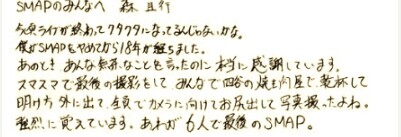 SMAPのみんなへ 森 且行
今頃ライブが終わってクタクタになってるんじゃないかな。
僕がSMAPをやめてから18年が経ちました。
あのとき あんな勝手なことを言ったのに 本当に感謝しています。
スマスマで最後の撮影をして、みんなで四谷の焼き肉屋で、乾杯して
明け方 外に出て、全員でカメラに向けてお尻出して 写真撮ったよね。
強烈に覚えています。あれが6人で最後のSMAP。